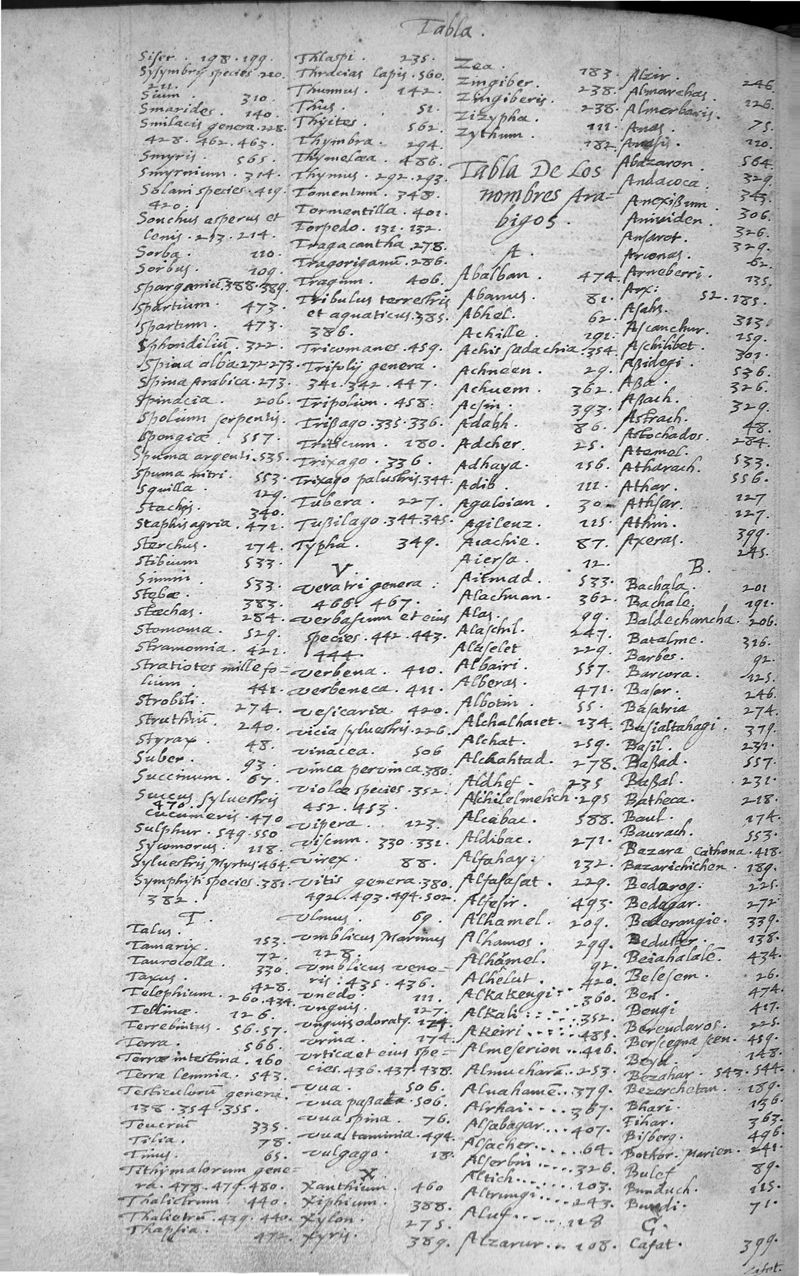 Tabla.
Siser. 198. 199.
Sysymbrij species 210.
211.
Sium. 310.
Smarides. 140.
Smilacis genera. 228.
428. 462. 463.
Smyris. 565.
Smyrnium. 314.
Solani species. 419.
420.
Sonchus asperus et
lenis. 213. 214.
Sorba. 110.
Sorbus. 109.
Sparganiũ. 388. 389.
Spartium. 473.
Spartum. 473.
Sphondiliũ. 322.
Spina alba 272 273.
Spina Arabica. 273.
Spinacia. 206.
Spolium serpentis.
Spongiæ 557.
Spuma argenti. 535.
Spuma nitri. 553.
Squilla 129.
Stachys. 340.
Staphis agria. 471.
Sterchus. 174.
Stibium 533.
Stimmi. 533.
Stœbæ. 383.
Stœchas. 284.
Stomoma. 529.
Stramomia. 421.
Stratiotes mille fo=
lium. 441.
Strobili. 274.
Struthiũ. 240.
Styrax. 48.
Suber. 93.
Succinum. 67.
Succus sylvestris
470.
cucumeris. 470
Sulphur. 549. 550
Sycomorus. 118.
Sylvestris Myrtus 464.
Symphiti species. 381
382.
T.
Talus.
Tamarix. 153.
Taurocolla. 72.
Taxus. 330.
428.
Telephium. 260. 434.
Tellinæ. 126.
Terrebintus. 56. 57.
Terra. 566.
Terræ intestina. 160
Terra lemnia. 543.
Testiculorũ genera.
138. 354. 355.
Toucriũ 335.
Tilia. 78.
Tinus. 65.
Tithymalorum gene=
ra. 478. 479. 480.
Thalictrum. 440.
Thalietrũ. 439. 440.
Thapsia. 472.
Thlaspi. 235.
Thracias lapis. 560.
Thunnus. 142.
Thus. 51.
Thyites. 562.
Thymbra. 294.
Thymelæa. 486.
Thymus. 292. 293.
Tomentum. 348.
Tormentilla. 401.
Torpedo. 131. 132.
Tragacantha. 278.
Tragoriganũ. 286.
Tragum. 406.
Tribulus terrestris
et aquaticus. 385.
386.
Tricomanes. 459.
Trifolij genera.
341. 342. 447.
Tripolion. 458.
Trißago. 335. 336.
Triticum. 180.
Trixago. 336.
Trixago palustris. 344.
Tubera. 227.
Tußilago. 344. 345.
Typha. 349.
V
veratri genera.
466. 467.
verbascum et eius
species. 442. 443.
444.
verbena. 410.
verbeneca. 411.
vesicaria. 420.
vicia sylvestris. 226.
vinacea. 506
vinca pervinca 380.
violæ species. 352.
452. 453.
vipera. 123.
viscum. 330. 331.
virex. 88.
vitis genera. 380.
492. 493. 494. 502.
vlmus. 69.
vmblicus Marinus
128.
vmblicus vene=
ris. 435. 436.
vnedo. 111.
vnguis. 127.
vnguis odoratg. 127.
vrina. 174.
vrtica et eius spe=
cies. 436. 437. 438.
vua. 506.
vua paßata. 506.
vua spina. 76.
vua taminia. 494.
vulgago. 18.
X
Xanthium. 460
Xiphium. 388.
Xylon. 275.
Xyris. 389.
Zea. 183.
Zingiber. 238.
Zingiberis. 238.
Zizypha. 111.
Zythum. 182.
Tabla De Los
nombres Ara=
bigos.
A.
Abalban. 474.
Abanus. 81.
Abhel. 62.
Achille. 191.
Achis sadachia. 354.
Achneen. 29.
Achuem. 362.
Acsin. 393.
Adabh. 86.
Adcher. 25.
Adhaya. 156.
Adib. 111.
Agaloian. 30.
Agileuz. 115.
Aiachie. 87.
Aiersa. 12.
Aitmad. 533.
Alachuan. 362.
Alas. 99.
Alaschil. 247.
Alaselet 229.
Albairi. 557.
Alberas. 471.
Albotin. 55.
Alchalhaset. 134.
Alchat. 259.
Alckahtad. 278.
Aldhef. 235
Alchilelmelich. 295
Alcabac. 588.
Aldibac. 271.
Alfahay. 132.
Alfasasat. 229.
Alfesir. 493.
Alhamel. 209.
Alhamos. 299.
Alhamel. 92.
Alhelut. 420.
Alkakengi. 360.
Alkali. 352.
Alkeiri. 485.
Almeserion. 416.
Almucharã. 253.
Aluahamẽ. 379.
Alrhai. 367.
Alsabagar. 407.
Alsacher. 64.
Alserbin. 326.
Altich. 103.
Altrungi. 243.
Aluf. 118
Alzarur. 108.
Alzir. 246.
Almarchas. 126.
Almerbaris. 75.
Anas. 120.
Anesis. 564.
Abazaron. 329.
Andacoca. 343.
Anexißum. 306.
Aniuiden. 326.
Ansarot. 329.
Arconas. 62.
Arneberri. 135.
Arx. 52. 185.
Asahs. 313.
Ascanchur. 159.
Aschilibet. 301.
Aßidegi. 536.
Aßa. 326.
Aßach. 329.
Astrach. 48.
Astochados. 284.
Atamel. 533.
Atharach. 556.
Athar. 127
Athsar. 127.
Athin. 399.
Axeras. 245.
B.
Bachala. 201
Bachale. 191.
Baldechancha. 206.
Batalme. 316.
Barbes. 92.
Barcora. 125.
Baser. 246.
Basatria 274.
Basialtahagi. 379.
Basil. 231.
Baßad. 557.
Baßal. 231.
Batheca. 218.
Baul. 174.
Baurach. 553.
Bazara Cathona. 418.
Bazarichichen. 189.
Bedarog. 225.
Bedagar. 272
Bederangie. 339.
Beduster. 138.
Beiahalalẽ. 434.
Belesem. 26.
Ben. 474.
Bengi 417.
Berendaros. 225.
Berscegna scen. 459.
Beyd. 148.
Bezahar. 543. 544.
Bezerchetan. 189.
Bhari. 136.
Fihar. 363.
Bisberg. 496.
Bothor. Marien. 241.
Bulef 89.
Bunduch. 115.
Bundi. 71.
C.
Cafat. 399.
Zibet.